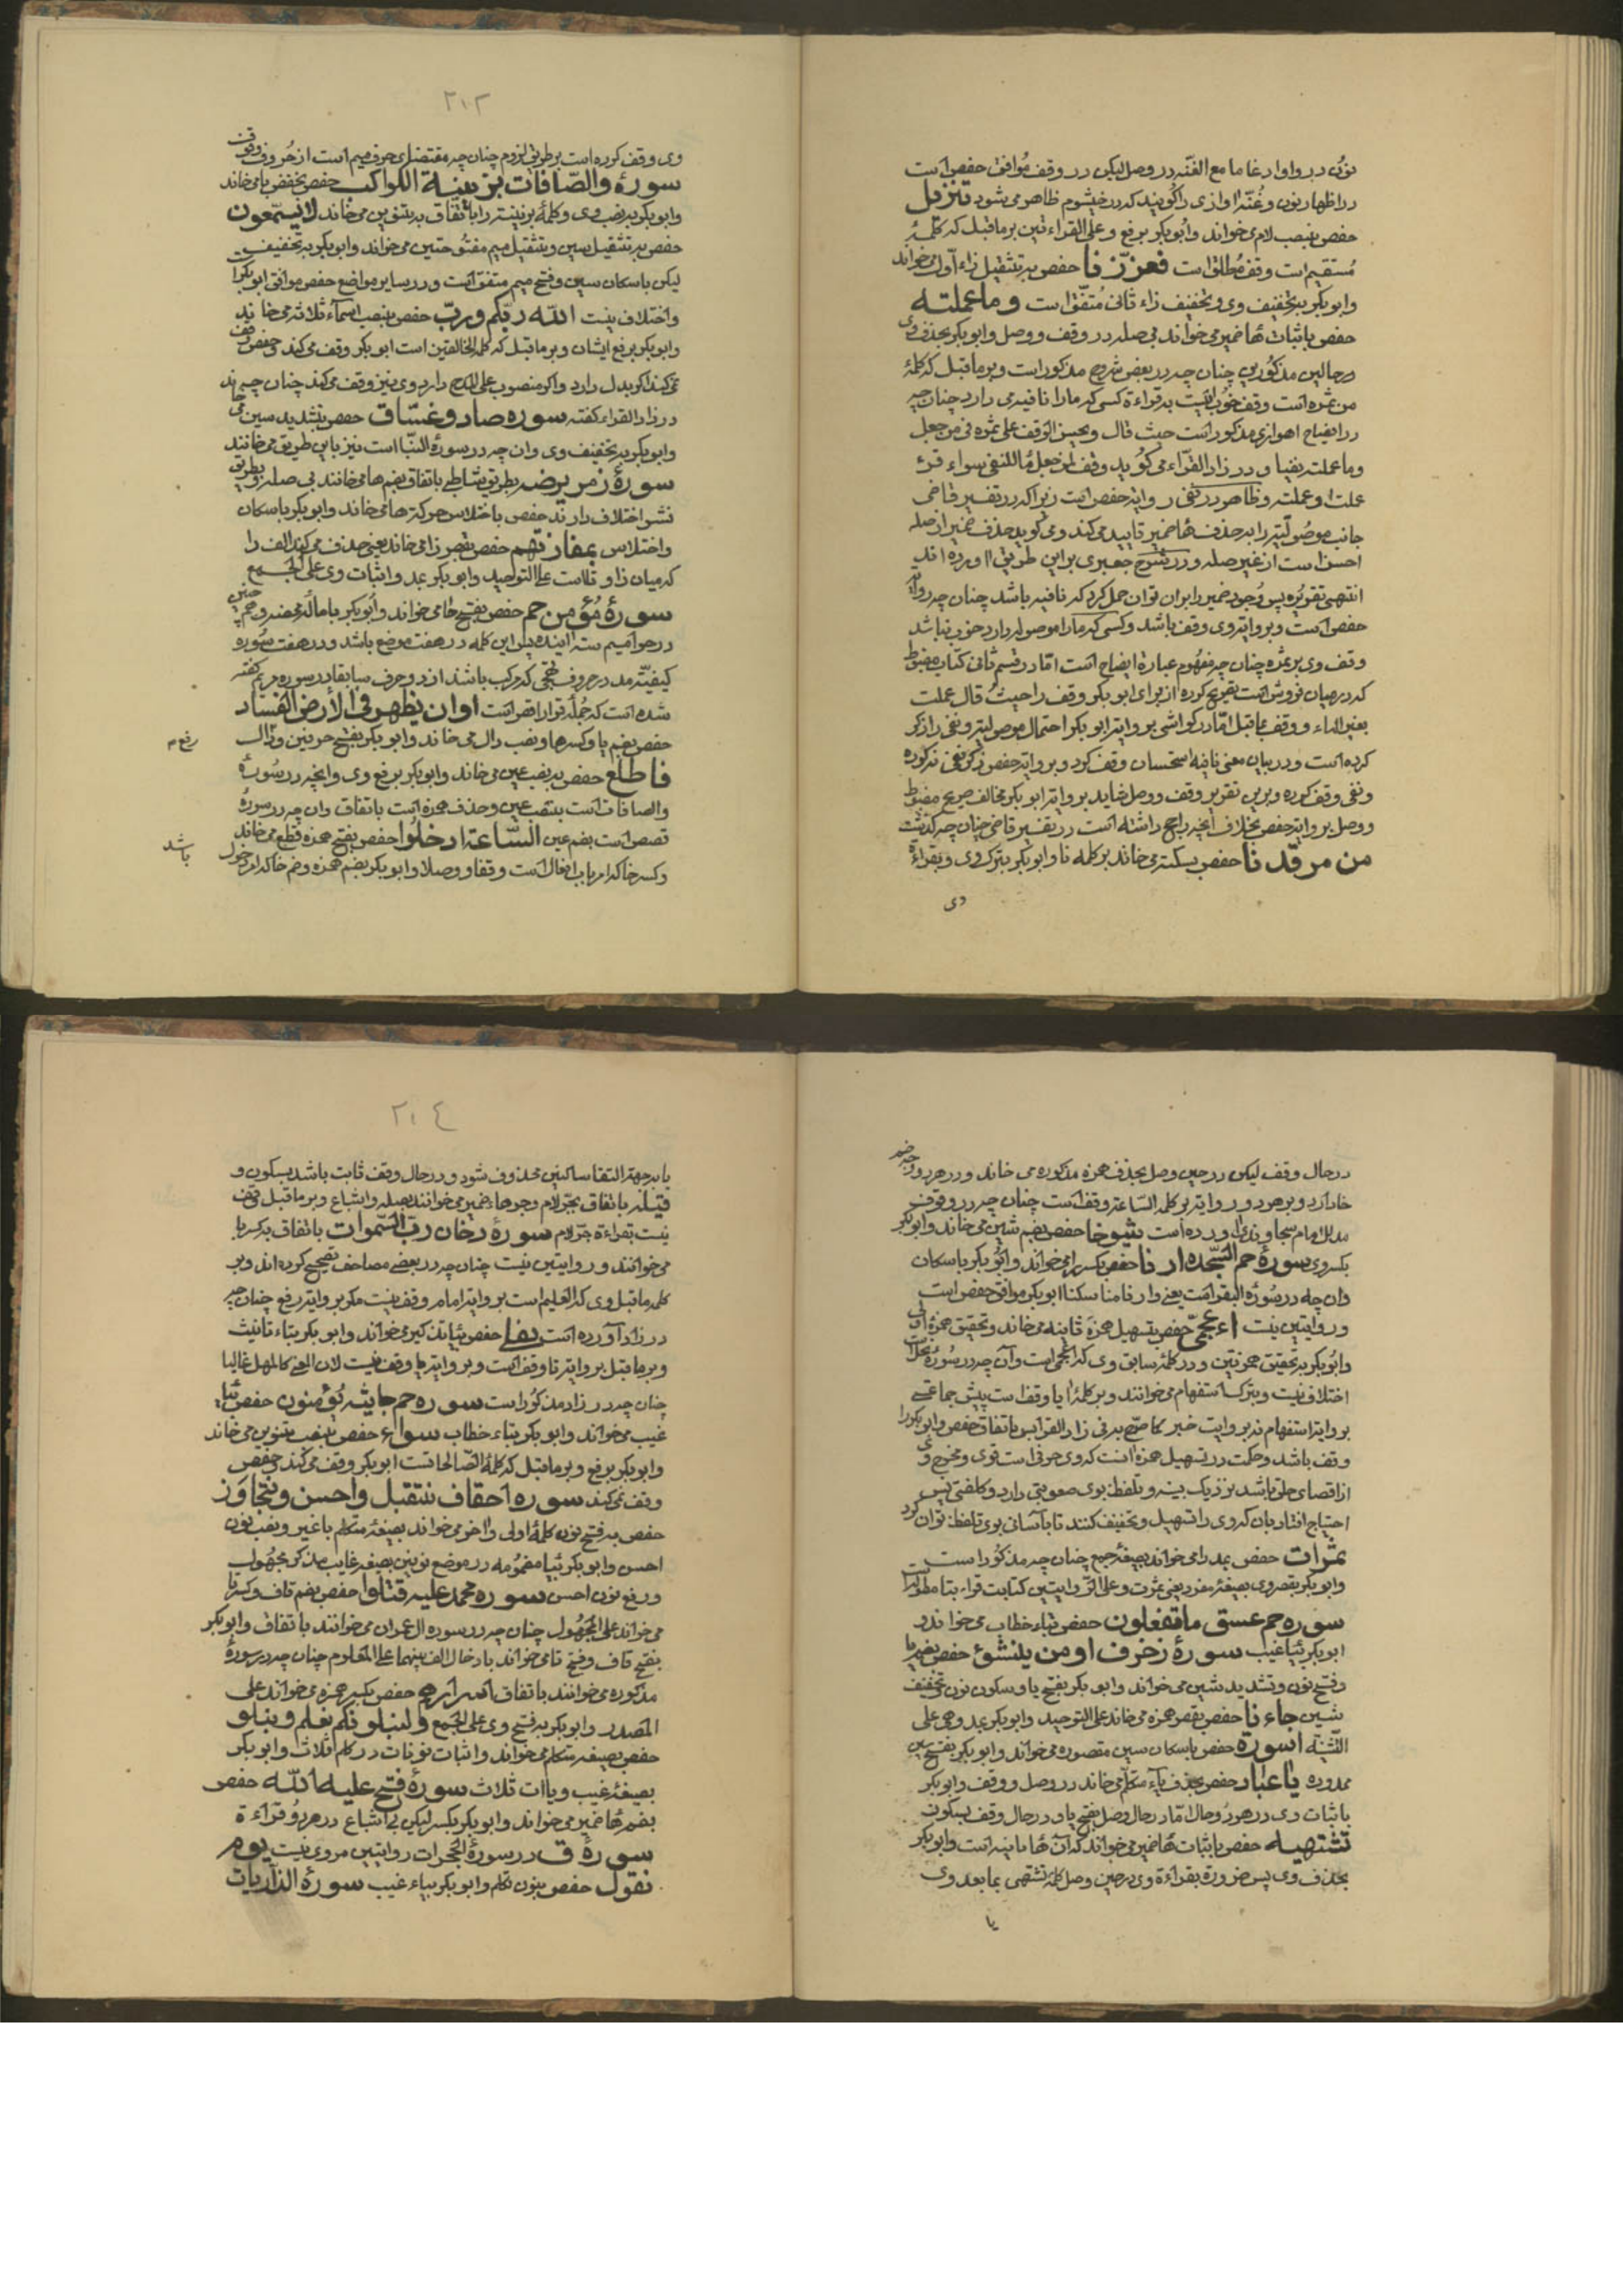 نون در واو ادغاما مع الغنّه در وصل لیکن در وقف موافق حفص است
در اظهار نون و غنّه اوازی را کویند که در خیشوم ظاهر می شود تنزیل
حفص بنصب لام می خواند وابوبکر برفع وعلی القراءتین بر ما قبل که کلمهٔ
مُستقیم است وقف مُطلق است فعزّزنا حفص به تثقیل زاء اُولی می خواند
وابوبکر بتخفیف وی و تخفیف زاء ثانی مُتفق است وما عملته
حفص باثبات هاء ضمیر می خواند بی صله در وقف و وصل وابوبکر بحذف وی
در حالین مذکورین چنان چه در بعض شروح مذکور است و بر ما قبل که کلمهٔ
من ثمره است وقف خوب نیست به قراءة کسی که ما را نافیه می دارد چنان چه
در ایضاح اهوازی مذکور است حیث قال ویحسن الوقف علی ثمره فی من جعل
وما عملته نفیا و در زاد القرّاء می کوید وقف لمن جعل ما للنفی سواء قرئ
علمت او عملته وظاهر در نفی روایة حفص است زیرا که در تفسیر قاضی
جانب موصولیّة را به حذف هاء ضمیر تایید می کند و می کوید حذف ضمیر از صله
احسن است از غیر صله و در شرح جعبری بر این طریق اورده اند
انتهی تقریره پس وجود ضمیر را بران توان حمل کرد که نافیه باشد چنان چه روایة
حفص است و بر روایة وی وقف باشد وکسی که ما را موصوله دارد خوب نباشد
وقف وی بر ثمره چنان چه مفهوم عبارة ایضاح است امّا در قسم ثانی کتاب مضبوط
که در میان فروش است تصریح کرده از برای ابوبکر وقف را حیث قال عملت
بغیر الهاء و وقف بما قبل
کرده است و در بیان معنی نافیه استحسان وقف کرد و بر روایة حفص
و نفی وقف کرده و برین تقریر وقف و وصل بر روایة ابوبکر مخالف صریح مضبوط
و وصل بر روایة حفص بخلاف آنچه راجح داشته است در تفسیر قاضی چنان چه کذشت
من مرقدنا حفص بسکته می خاند بر کلمه نا وابوبکر بترک وی و بقراءة
وی
٢١٣
وی وقف کرده است بر طریق لزوم چنان چه مقتضای حرف میم است از حُروف وقوف
سورهٔ والصّافات بزینة الکواکب حفص بخفض با می خاند
وابوبکر به نصب وی و کلمهٔ بزینة را باتفاق به تنوین می خاند لا یسمّعون
حفص به تثقیل سین و تثقیل میم مفتوحتین می خواند وابوبکر به تخفیف
لیکن باسکان سین و فتح میم متفق است و در سایر مواضع حفص موافق ابوبکر
واختلاف نیست الله ربّکم وربّ حفص بنصب اسماء ثلاثه می خاند
وابوبکر برفع ایشان و بر ما قبل که کلمه الخالقین است ابوبکر وقف می کند و حفص وقف
نمی کند اکر بدل دارد واکر منصوب علی المدح دارد وی نیز وقف می کند چنان چه
در زاد القراء کفته سوره صاد وغسّاق حفص بتشدید سین می خاند
وابوبکر به تخفیف وی وان چه در سورهٔ النبا است نیز باین طریق می خانند
سورهٔ زمر یرضه بطریق شاطبی باتفاق بضم ها می خانند بی صله و بطریق
نشر اختلاف دارند حفص باختلاس حرکة ها می خاند وابوبکر باسکان
واختلاس بمفازتهم حفص بقصر زا می خاند یعنی حذف می کند الف را
که میان زا و تا است علی التوحید وابوبکر بمد و اثبات وی علی الجمع
سورهٔ مؤمن حم حفص بفتح حا می خواند وابوبکر باماله محضه و هم چنین
در حوامیم ستهٔ آینده پس این کلمه در هفت موضع باشد و در هفت سُوره
کیفیّة مد در حروف تهجی که مرکب باشند از دو حرف سابقا در سوره مریم کفته
شده است که جُمله قرا را قصر است او ان یظهر فی الارض الفساد
حفص بضم یا وکسر ها ونصب دال می خاند وابوبکر بفتح حرفین و دال
رفع م
فاطلع حفص به نصب عین می خاند وابوبکر برفع وی وانچه در سُورهٔ
والصافات است بنصب عین و حذف همزه است باتفاق وان چه در سورهٔ
قصص است بضم عین الساعة ادخلوا حفص بفتح همزه قطع می خاند
وکسر خا که امر باب افعال است وقفا و وصلا وابوبکر بضم همزه وضم خا که امر دخول
باشد
در حال وقف لیکن در حین وصل بحذف همزه مذکوره می خاند و در هر دو وجه ضم
خا دارد و بر هر دو روایة بر کلمه الساعة وقف است چنان چه در وقوف
مدلل امام سجاوندی اورده است شیوخا حفص بضم شین می خاند وابوبکر
بکسر وی سورهٔ حم السّجده ارنا حفص بکسر را می خواند وابُوبکر باسکان
وان چه در سورهٔ البقره است یعنی وارنا مناسکنا ابوبکر موافق حفص است
و روایتین نیست ءاعجمیّ حفص بتسهیل همزهٔ ثانیه می خاند وتحقیق همزهٔ اولی
وابوبکر به تحقیق همزتین و در کلمهٔ سابق وی که اعجمیا است وآن چه در سُورهٔ نحل است
اختلاف نیست و بترک استفهام می خوانند و بر کلمهٔ ایاته وقف است پیش جماعتی
بر روایة استفهام نه بر روایت خبر کما صرّح به فی زاد القراء پس باتفاق حفص وابوبکر را
وقف باشد وحکمت در تسهیل همزه انست که وی حرفی است قوی ومخرج وی
از اقصای حلق باشد نزدیک بینه و تلفظ بوی صعوبتی دارد و کلفتی پس
احتیاج افتاد بان که وی را تسهیل و تخفیف کنند تا به آسانی بوی تلفظ توان کرد
ثمرات حفص بمد را می خواند بصیغهٔ جمع چنان چه مذکور است
وابوبکر بقصر وی بصیغهٔ مفرد یعنی ثمرت وعلی الرّوایتین کتابت قراء بتا مطوله است
سوره حم عسق ما تفعلون حفص بتاء خطاب می خواند و
ابوبکر بیاء غیب سورهٔ زخرف اومن ینشؤ حفص بضم یا
و فتح نون و تشدید شین می خواند وابوبکر بفتح یا و سکون نون و تخفیف
شین جاءنا حفص بقصر همزه می خاند علی التوحید وابوبکر بمد وی علی
التّثنیه اسورة حفص باسکان سین مقصوره می خواند وابوبکر بفتح سین
ممدوده یا عباد حفص بحذف یاء متکلم می خاند در وصل و وقف وابوبکر
باثبات وی در هر دو حال امّا در حال وصل بفتح یا و در حال وقف بسکون
تشتهیه حفص باثبات هاء ضمیر می خواند که آن هاء ثانیه است وابوبکر
بحذف وی پس ضرورة بقراءة وی در حین وصل کلمهٔ تشتهی بما بعد وی
یا
٢١٤
یا به جهة التقا ساکنین محذوف شود و در حال وقف ثابت باشد بسکون و
قیله باتفاق بجرّ لام وجر هاء ضمیر می خوانند بصله واشباع و بر ما قبل وقف
نیست بقراءة جرّ لام سورهٔ دخان ربّ السّموات باتفاق به کسر با
می خوانند و روایتین نیست چنان چه در بعضی مصاحف تصحیح کرده اند و بر
کلمه ما قبل وی که العلیم است بر روایة امام وقف نیست مکر بر روایة رفع چنان چه
در زاد آورده است یغلی حفص بیاء تذکیر می خواند وابوبکر بتاء تانیث
و بر ما قبل بر روایة تا وقف است و بر روایة یا وقف نیست لان المعنی کالمهل غالیا
چنان چه در زاد مذکور است سوره حم جاثیه یؤمنون حفص بیاء
غیب می خواند وابوبکر بتاء خطاب سواء حفص بنصب بتنوین می خاند
وابوبکر برفع و بر ما قبل که کلمهٔ الصّالحات است ابوبکر وقف می کند و حفص
وقف نمی کند سوره احقاف نتقبل واحسن ونتجاوز
حفص به فتح نون کلمهٔ اولی واخر می خواند بصیغهٔ متکلم باغیر ونصب نون
احسن وابوبکر بیاء مضمومه در موضع نونین بصیغهٔ غایب مذکر مجهول
ورفع نون احسن سوره محمد علیه قتلوا حفص بضم قاف وکسر تا
می خواند علی المجهول چنان چه در سوره ال عمران می خوانند باتفاق وابوبکر
بفتح قاف و فتح تا می خواند بادخال الف بینهما علی المعلوم چنان چه در سورهٔ
مذکوره می خوانند باتفاق اسرارهم حفص بکسر همزه می خواند علی
المصدر وابوبکر به فتح وی علی الجمع ولنبلونکم نعلم ونبلو
حفص بصیغه متکلم می خواند واثبات نونات در کلم ثلاث وابوبکر
بصیغهٔ غیب ویاات ثلاث سورهٔ فتح علیه الله حفص
بضم هاء ضمیر می خواند وابوبکر بکسر لیکن بی اشباع در هر دو قراءة
سورهٔ ق در سورهٔ الحجرات روایتین مروی نیست یوم
نقول حفص بنون تکلم وابوبکر بیاء غیب سورهٔ الذّاریات